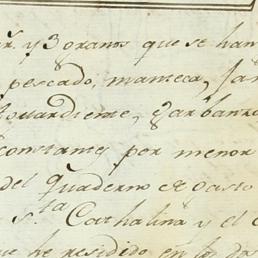 y 3 granos que se han
pescado, manteca, Ja
Aguardiente, Garbanzo
constante, por menor
del Quaderno de Gasto
S.ta Cathalina y el C
que he residido en